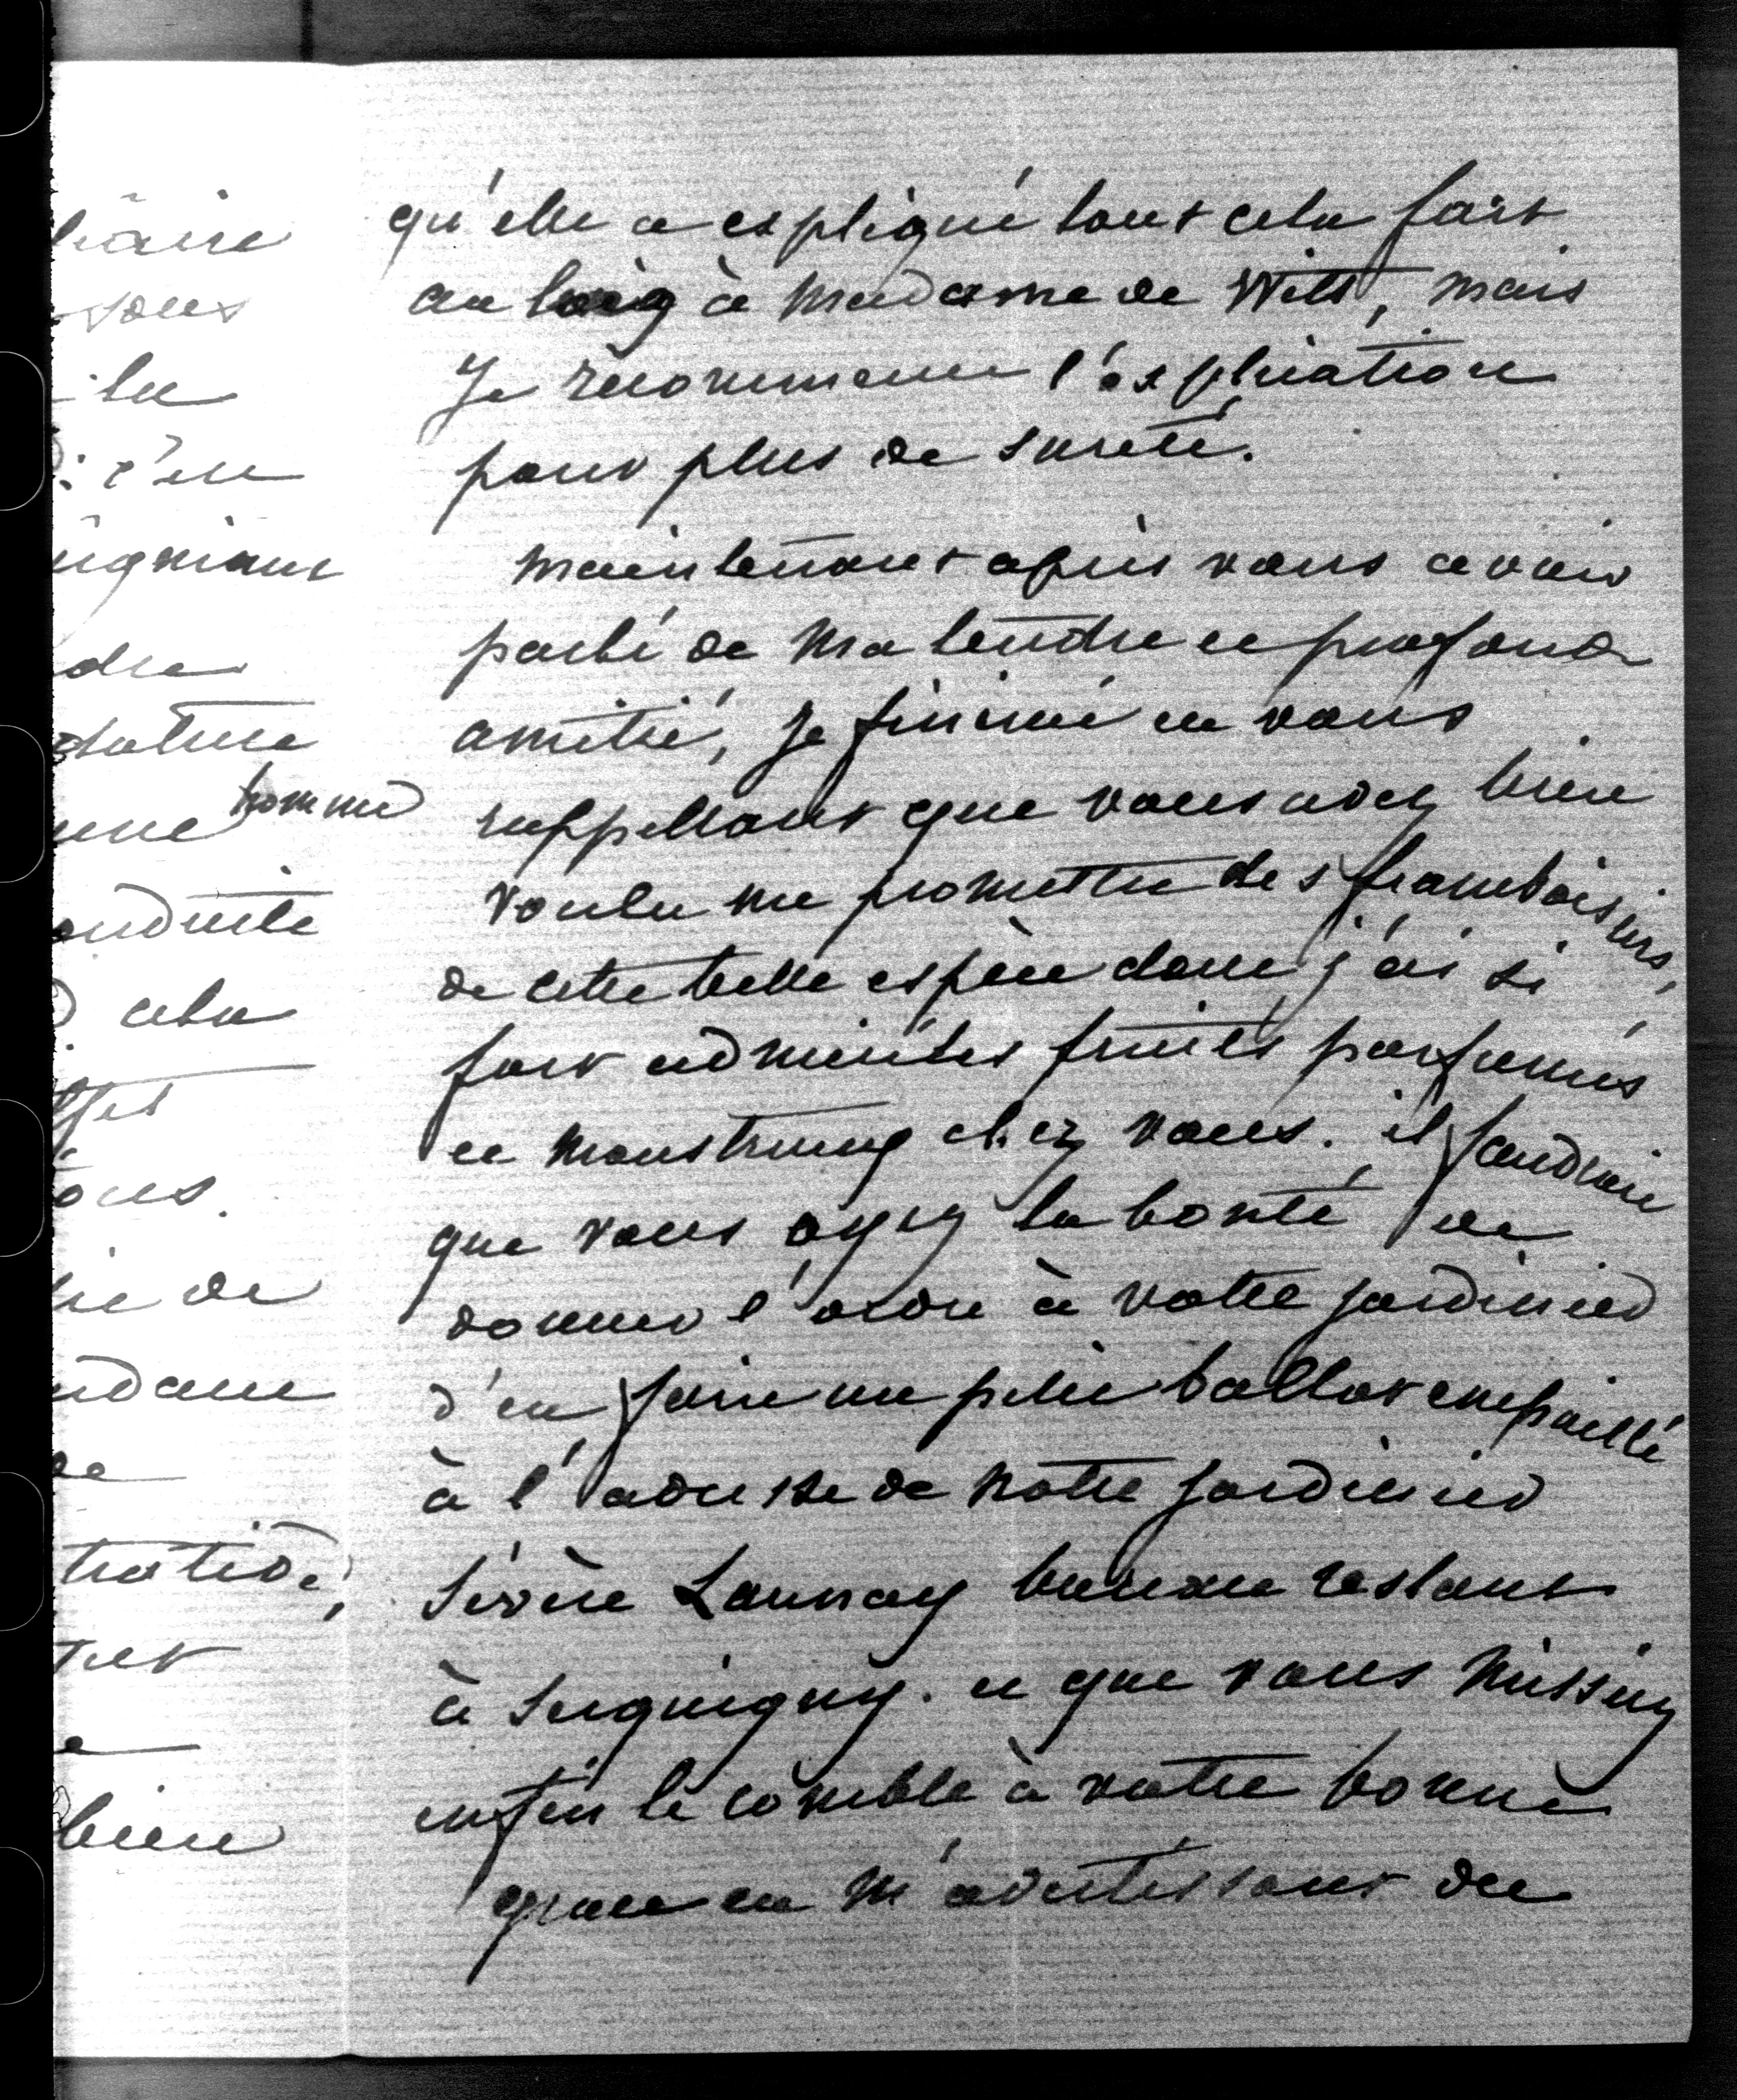 qu'elle a expliqué tout cela fort
au long à Madame de Witt, mais
Je recommence l'explication
pour plus de sureté.
Maintenant après vous avoir
parlé de ma tendre et profonde
amitié, Je finirai en vous
rappellant que vous avez bien
voulu me promettre des framboisiers,
de cette belle espèce dont j'ai si
fort admiré les fruits parfumés
et monstrueux chez vous. il faudrait
que vous ayez la bonté de
donner l'ordre à votre jardinier
d'en faire un petit ballot empaillé
à l'adresse de notre jardinier
Sévère Launay bureau restant
à Serquigny. et que vous missiez
enfin le comble à votre bonne
grace en m'avertissant du
sous
la
: c'en
dre
nommé
cela
ie de
de
bien